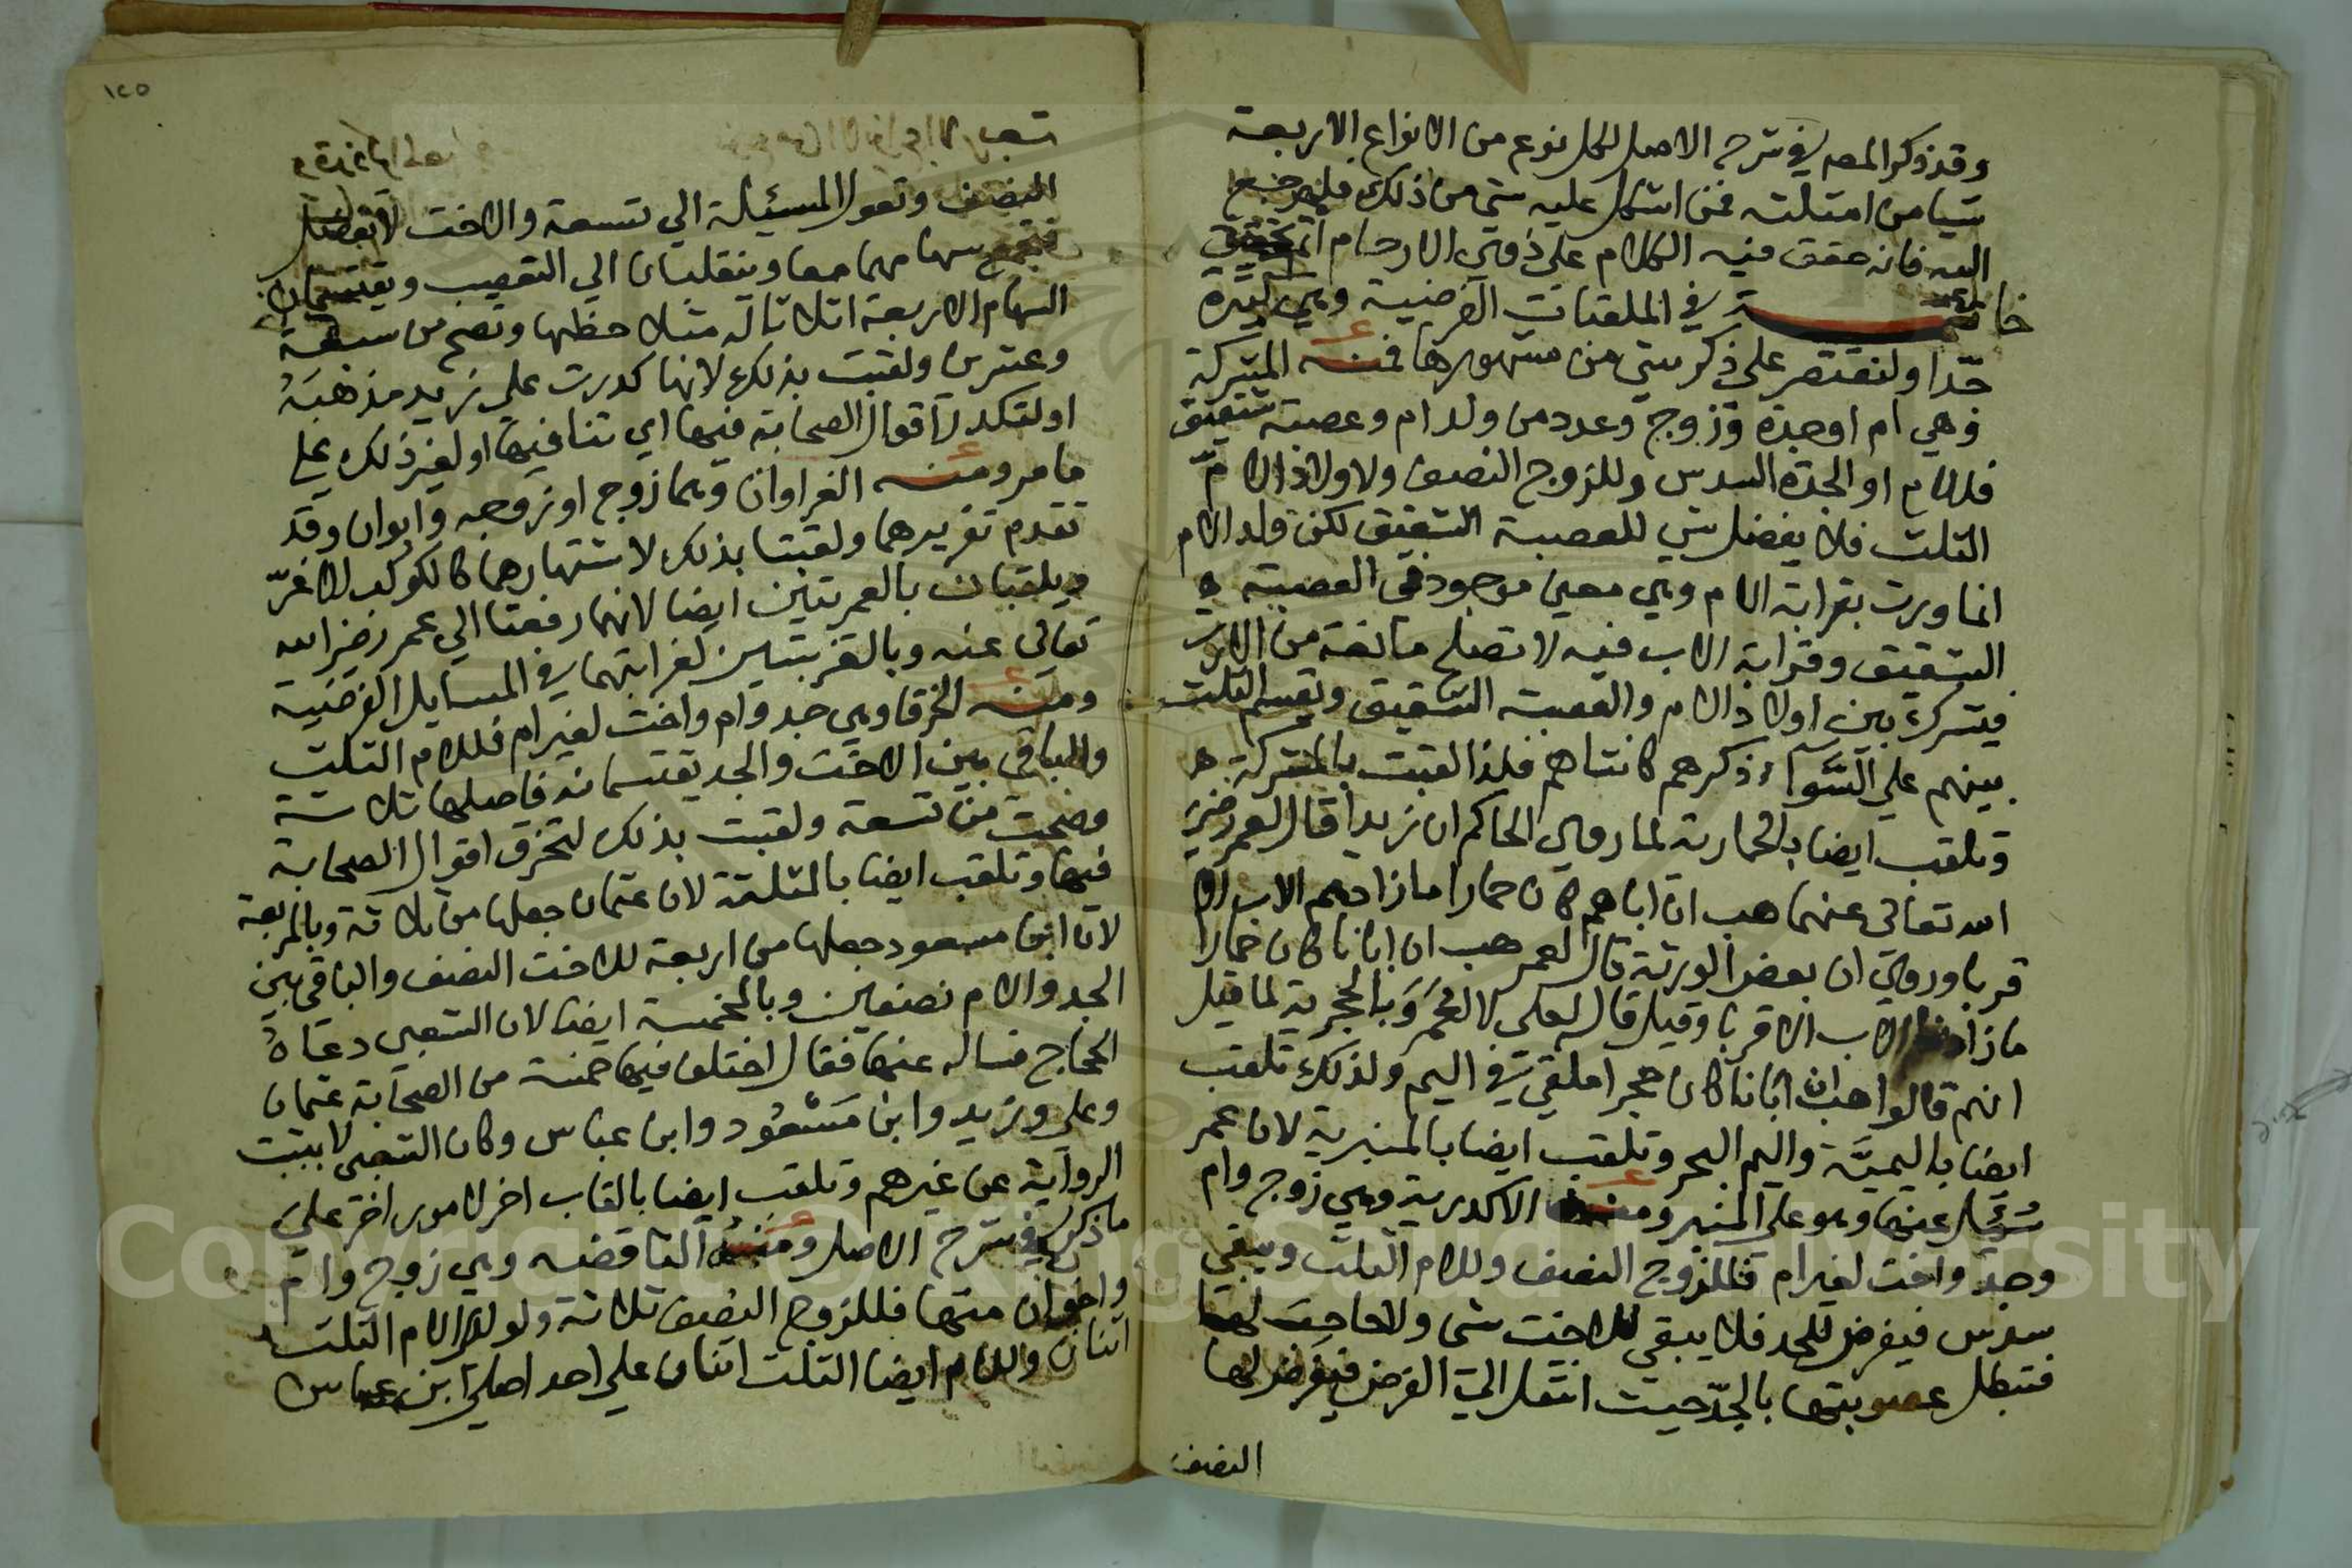 وقد ذكر المصـ في شرح الاصل لكل نوع من الانواع الاربعة
شيا من امثلته فمن اشكل عليه شي من ذلك فليرجع
اليه فانه حقق فيه الكلام علي ذوي الارحام اتم تحقيق
خاتمـــة في الملقبات الفرضية وهي كثيرة
جدا ولنقتصر علي ذكر شي من مشهورها فمنـه المشركة
وهي ام او جدة وزوج وعدد من ولد ام وعصبة شقيق
فللام او الجدة السدس وللزوج النصف ولاولاد الام
الثلث فلا يفضل شي للعصبة الشقيق لكن ولد الام
انما ورث بقرابة الام وهي معين موجود في العصبة
الشقيق وقرابة الاب فيه لا تصلح مانعة من الارث
فيشرك بين اولاد الام والعصبة الشقيق ويقسم الثلث
بينهم علي السواء ذكرهم كانثاهم فلذا لقبت بالمشركة
وتلقب ايضا بالحمارية لما روي الحاكم ان زيدا قال لعمر رضي
الله تعالى عنهما هب ان اباهم كان حمارا ما زادهم الاب الا
قربا وروي ان بعض الورثة قال لعمر هب ان ابانا كان حمارا
ما زادنا الاب الا قربا وقيل قال لعلي لا لعمر وبالحجرية لما قيل
انهم قالوا هب ان ابانا كان حجرا ملقي في اليم ولذلك تلقب
ايضا باليمية واليم البحر وتلقب ايضا بالمنبرية لان عمر
سئل عنها وهو علي المنبر ومنها الاكدرية وهي زوج وام
وجد واخت لغير ام فللزوج النصف وللام الثلث ويبقي
سدس فيفرض للجد فلا يبقي للاخت شي ولا حاجب لها
فتبطل عصوبتها بالجد حيث انتقل الي الفرض فيفرض لها
النصف
١٢٥
النصف وتعول المسئلة الي تسعة والاخت لا تفضل
فتجمع سهامهما معا وينقلبان الي التعصيب ويقتسمان
السهام الاربعة اثلاثا له مثلا حظها وتصح من سبعة
وعشرين ولقبت بذلك لانها كدرت علي زيد مذهبه
او لتكدر اقوال الصحابة فيها اي تنافيها او لغير ذلك علي
ما مر ومنـه الغراوان وهما زوج او زوجه وابوان وقد
تقدم تقريرهما ولقبتا بذلك لاشتهارهما كالكوكب الاغر
ويلقبان بالعمريتين ايضا لانهما رفعتا الي عمر رضي الله
تعالى عنه وبالغريبتين لغرابتهما في المسايل الفرضية
ومنـه الخرقا وهي جد وام واخت لغير ام فللام الثلث
والباقي بين الاخت والجد يقتسمانه فاصلها ثلاثة
وصحت من تسعة ولقبت بذلك لتخرق اقوال الصحابة
فيها وتلقب ايضا بالمثلثة لان عثمان جعلها من ثلاثة وبالمربعة
لان ابن مسعود جعلها من اربعة للاخت النصف والباقي بين
الجد والام نصفين وبالمخمسة ايضا لان الشعبي دعاه
الحجاج فساله عنها فقال اختلف فيها خمسة من الصحابة عثمان
وعلي وزيد وابن مسعود وابن عباس وكان الشعبي لا يثبت
الرواية عن غيرهم وتلقب ايضا بالقاب اخر لامور اخر علي
ما ذكره في شرح الاصل ومنـه الناقضه وهي زوج وام
واخوان منها فللزوج النصف ثلاثة ولولد الام الثلث
اثنان وللام ايضا الثلث اثنان علي احد اصلي ابن عباس